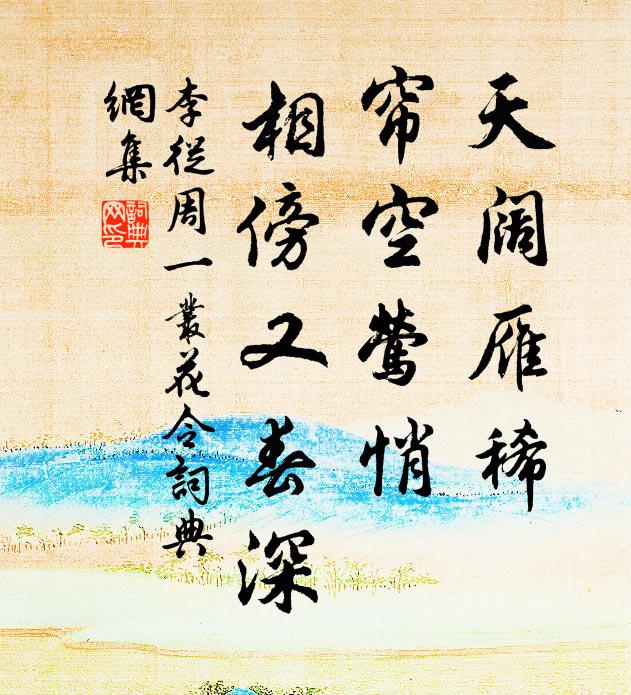 天阔雁稀
帘空莺悄
相傍又春深
李從周一叢花令詞典
網集
詞典
网印